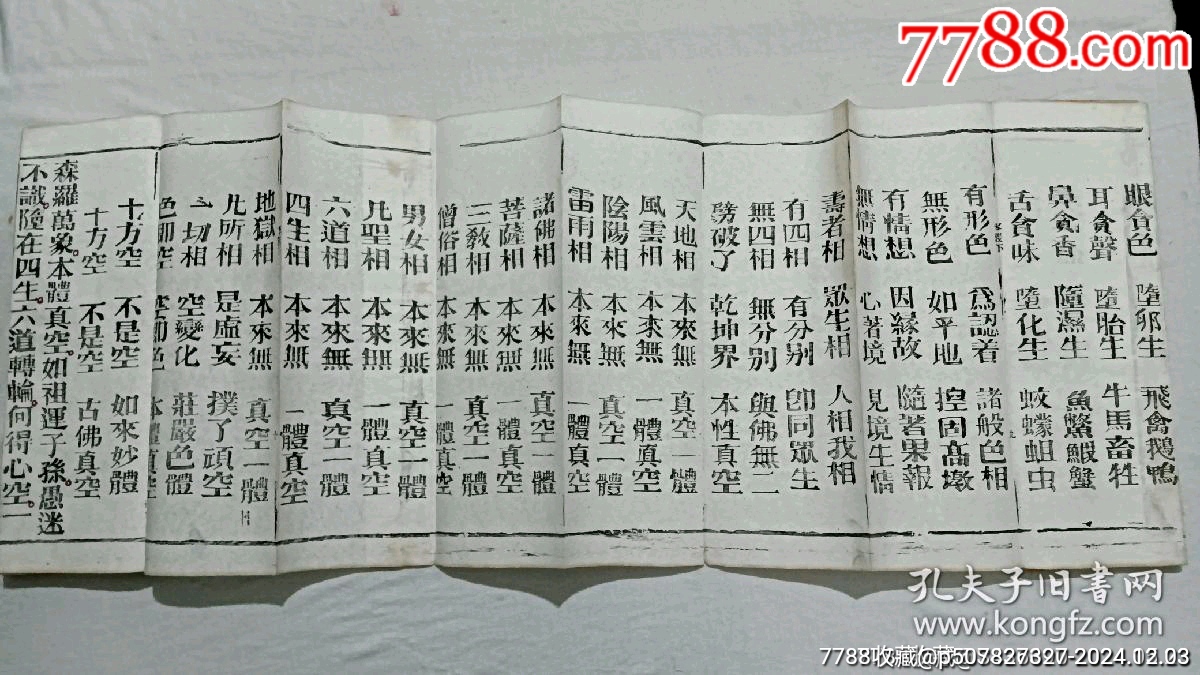 7788.com
眼貪色 墮卵生 飛禽鵝鴨
耳貪聲 墮胎生 牛馬畜牲
鼻貪香 墮濕生 魚鱉蝦蟹
舌貪味 墮化生 蚊蠓蛆虫
有形色 爲認着 諸般色相
無形色 如平地 揑固髙墩
有情想 因緣故 隨著果報
無情想 心著境 見境生情
壽者相 眾生相 人相我相
有四相 有分别 卽同眾生
無四相 無分别 與佛無二
劈破了 乾坤界 本性真空
天地相 本來無 真空一體
風雲相 本來無 一體真空
陰陽相 本來無 真空一體
雷雨相 本來無 一體真空
諸佛相 本來無 真空一體
菩薩相 本來無 一體真空
三教相 本來無 真空一體
僧俗相 本來無 一體真空
男女相 本來無 真空一體
凡聖相 本來無 一體真空
六道相 本來無 真空一體
四生相 本來無 一體真空
地獄相 本來無 真空一體
凡所相 是虛妄 撲了頑空
一切相 空變化 莊嚴色體
色卽空 空卽色 本體真空
十方空 不是空 如來妙體
十方空 不是空 古佛真空
森羅萬象。本體真空。如祖運子孫。愚迷
不識。隨在四生。六道轉輪。何得心空。一
孔夫子旧书网
www.kongfz.com
7788收藏@p507827327-2024.12.03